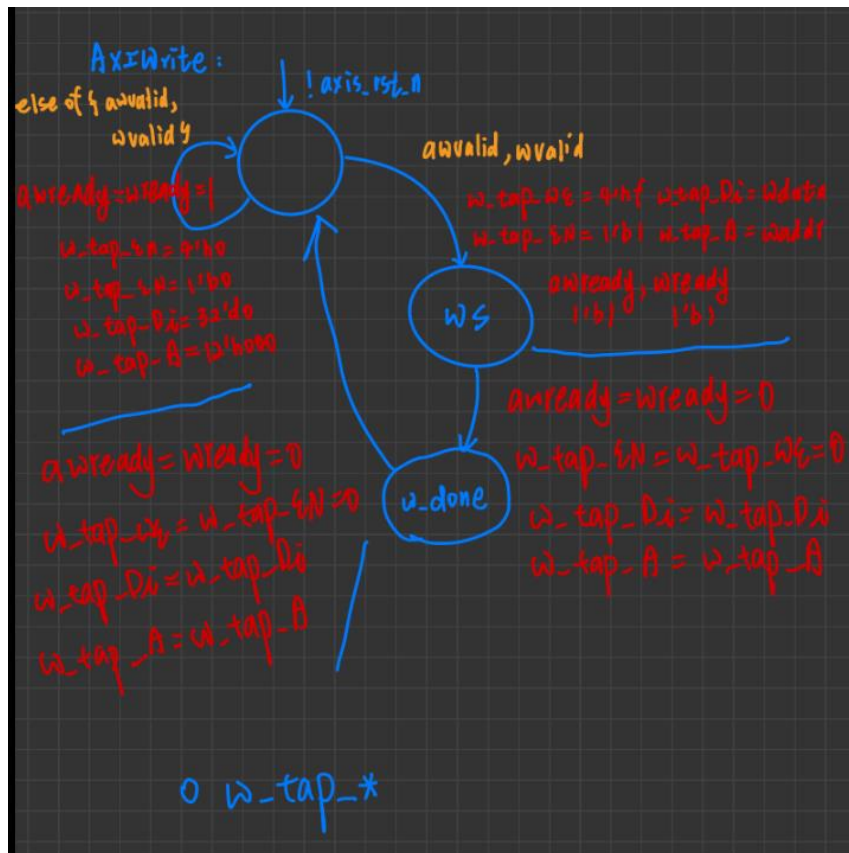 AXIWrite:
! axis_rst_n
else of { awvalid,
wvalid }
awvalid, wvalid
awready=wready=1
w_tap_EN=4'h0
w_tap_EN=1'b0
w_tap_Di=32'd0
w_tap_A=12'h000
w_tap_WE=4'hf w_tap_Di=wdata
w_tap_EN=1'b1 w_tap_A=waddr
awready, wready
1'b1 1'b1
WS
awready=wready=0
w_tap_EN=w_tap_WE=0
w_tap_Di=w_tap_Di
w_tap_A=w_tap_A
w_done
awready=wready=0
w_tap_WE=w_tap_EN=0
w_tap_Di=w_tap_Di
w_tap_A=w_tap_A
0 w_tap_*